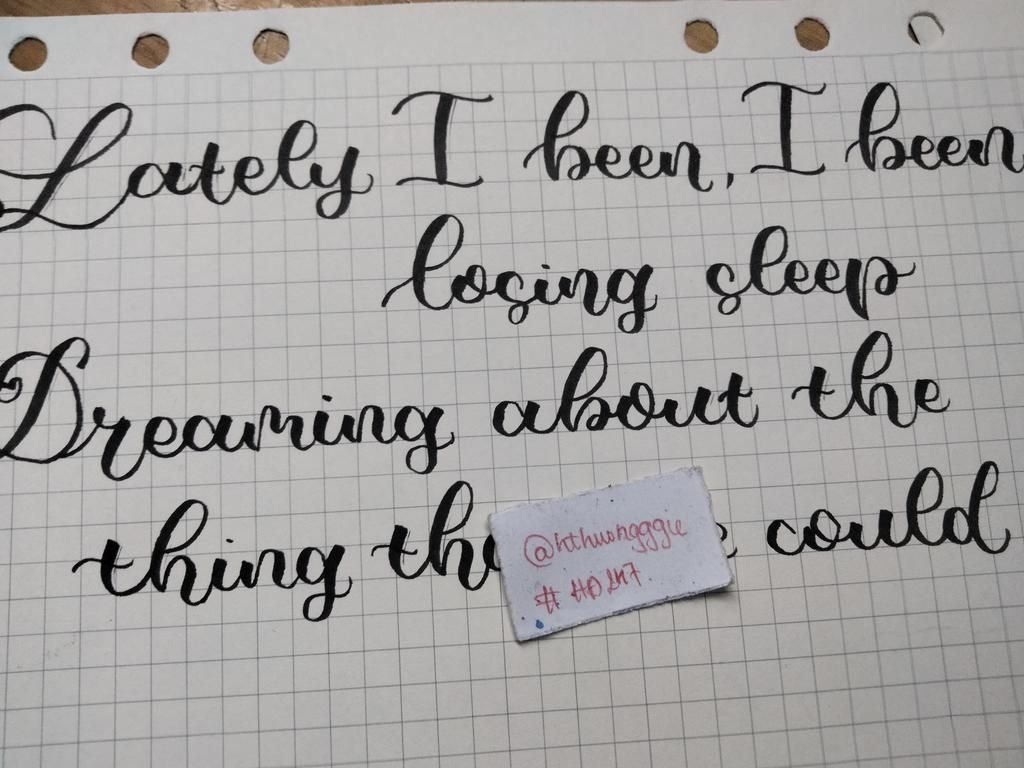 Lately I been, I been
losing sleep
Dreaming about the
thing could
@hthuongggie